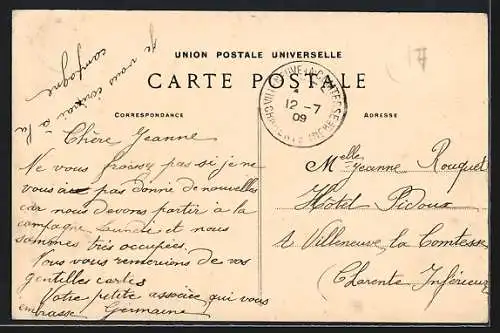 je vous écrirai à la
campagne
UNION POSTALE UNIVERSELLE
CARTE POSTALE
CORRESPONDANCE
ADRESSE
VILLENEUVE-LA-COMTESSE
12-7
09
17
Chère Jeanne
Ne vous froissy pas si je ne
vous ai pas donné de nouvelles
car nous devons partir à la
campagne Lundi et nous
sommes très occupées.
Nous vous remercions de vos
gentilles cartes
Votre petite associée qui vous
embrasse Germaine
Melle Jeanne Rouquet
Hôtel Pidoux
à Villeneuve la Comtesse
Charente Inférieure